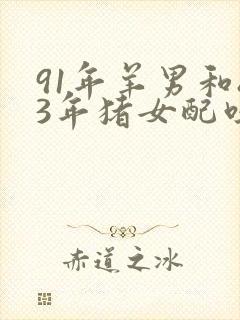 91年羊男和
3年猪女配
赤道之冰